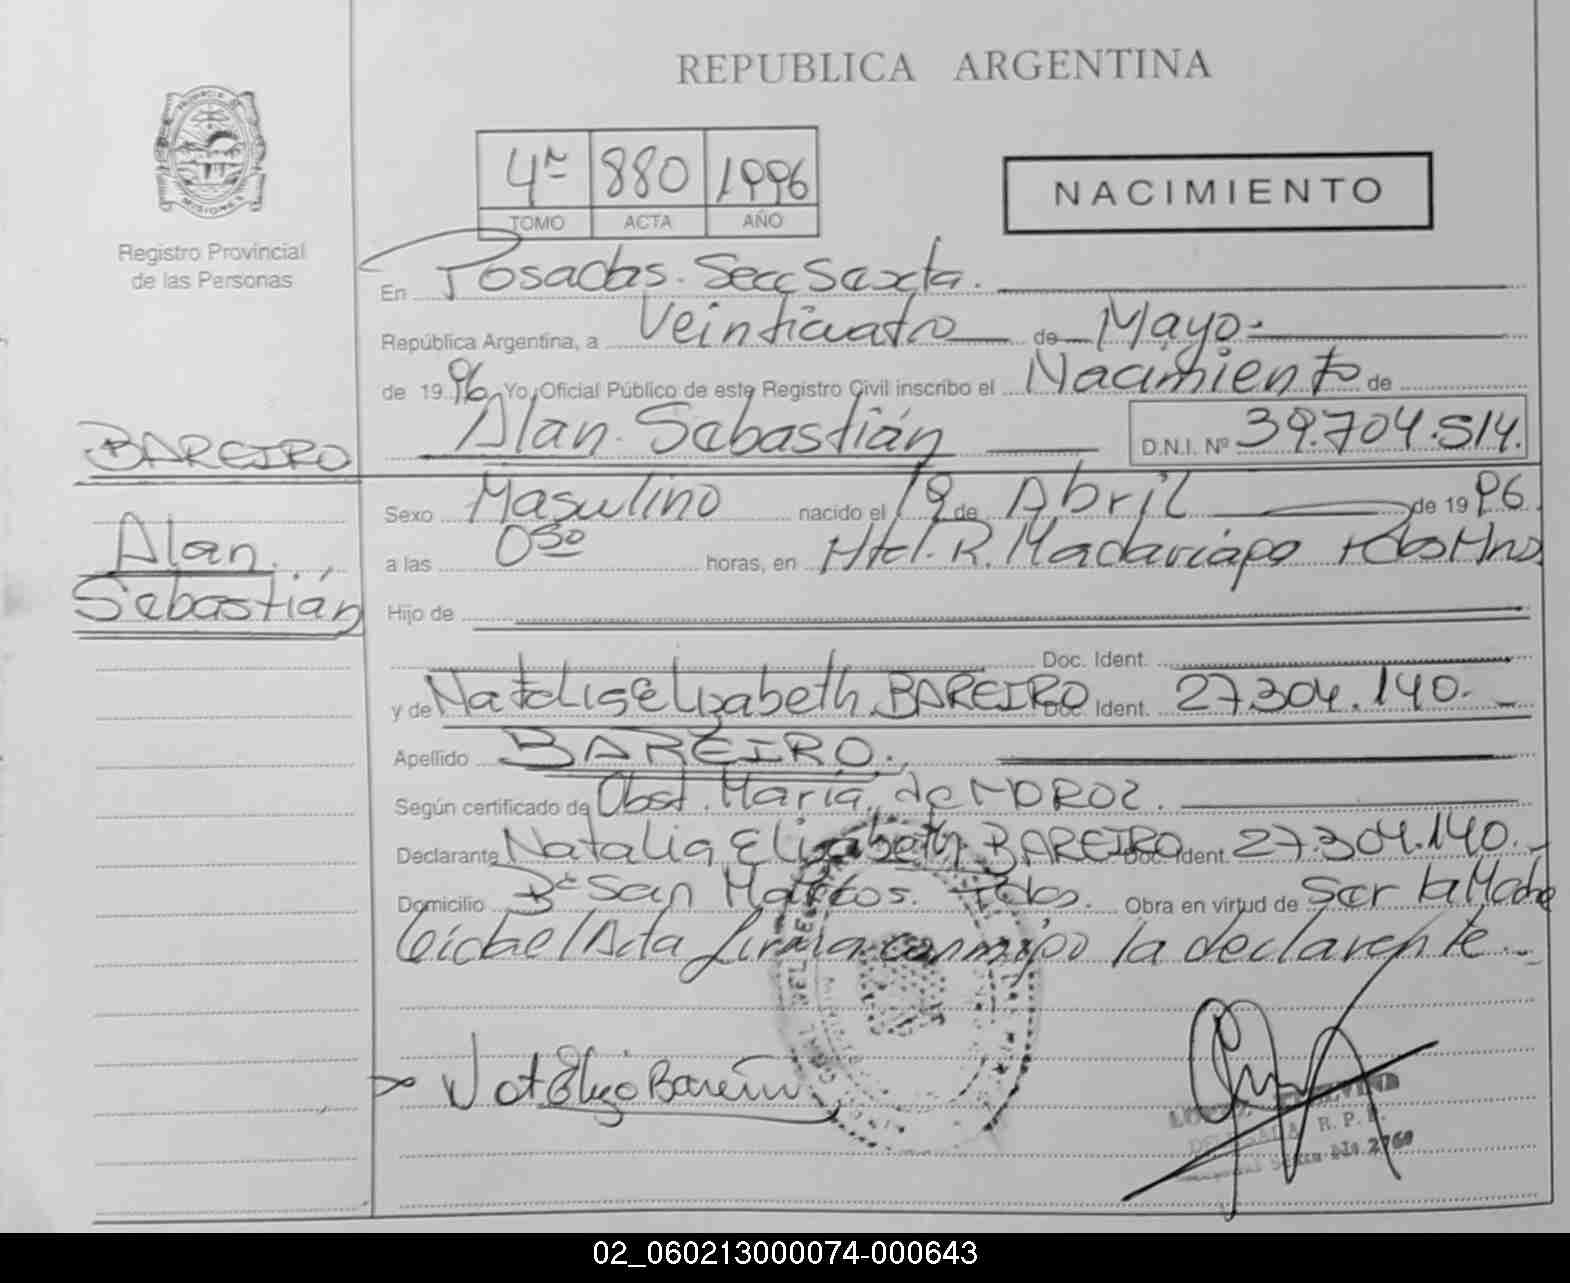 REPUBLICA ARGENTINA
PROVINCIA DE
MISIONES
Registro Provincial
de las Personas
4º 880 1996
TOMO ACTA AÑO
NACIMIENTO
En Posadas. Secc Sexta.
República Argentina, a Veinticuatro de Mayo.
de 1996 Yo, Oficial Público de este Registro Civil inscribo el Nacimiento de
Alan Sebastián D.N.I. Nº 39.704.514.
BAREIRO
Alan
Sebastián
Sexo Masculino nacido el 19 de Abril de 1996
a las 030 horas, en Htal. R. Madariaga Pdas Mns
Hijo de
Doc. Ident.
y de Natalia Elizabeth BAREIRO Doc. Ident. 27.304.140.
Apellido BAREIRO.
Según certificado de Obst. María de
Declarante Natalia Elizabeth BAREIRO Doc. Ident. 27.304.140.
Domicilio Bº San Marcos. Pdas. Obra en virtud de Ser la Madre
Leída el Acta firma conmigo la declarante.
Nat Eliza Bareiro
DELEGADA R.P.P.
2760
02_060213000074-000643